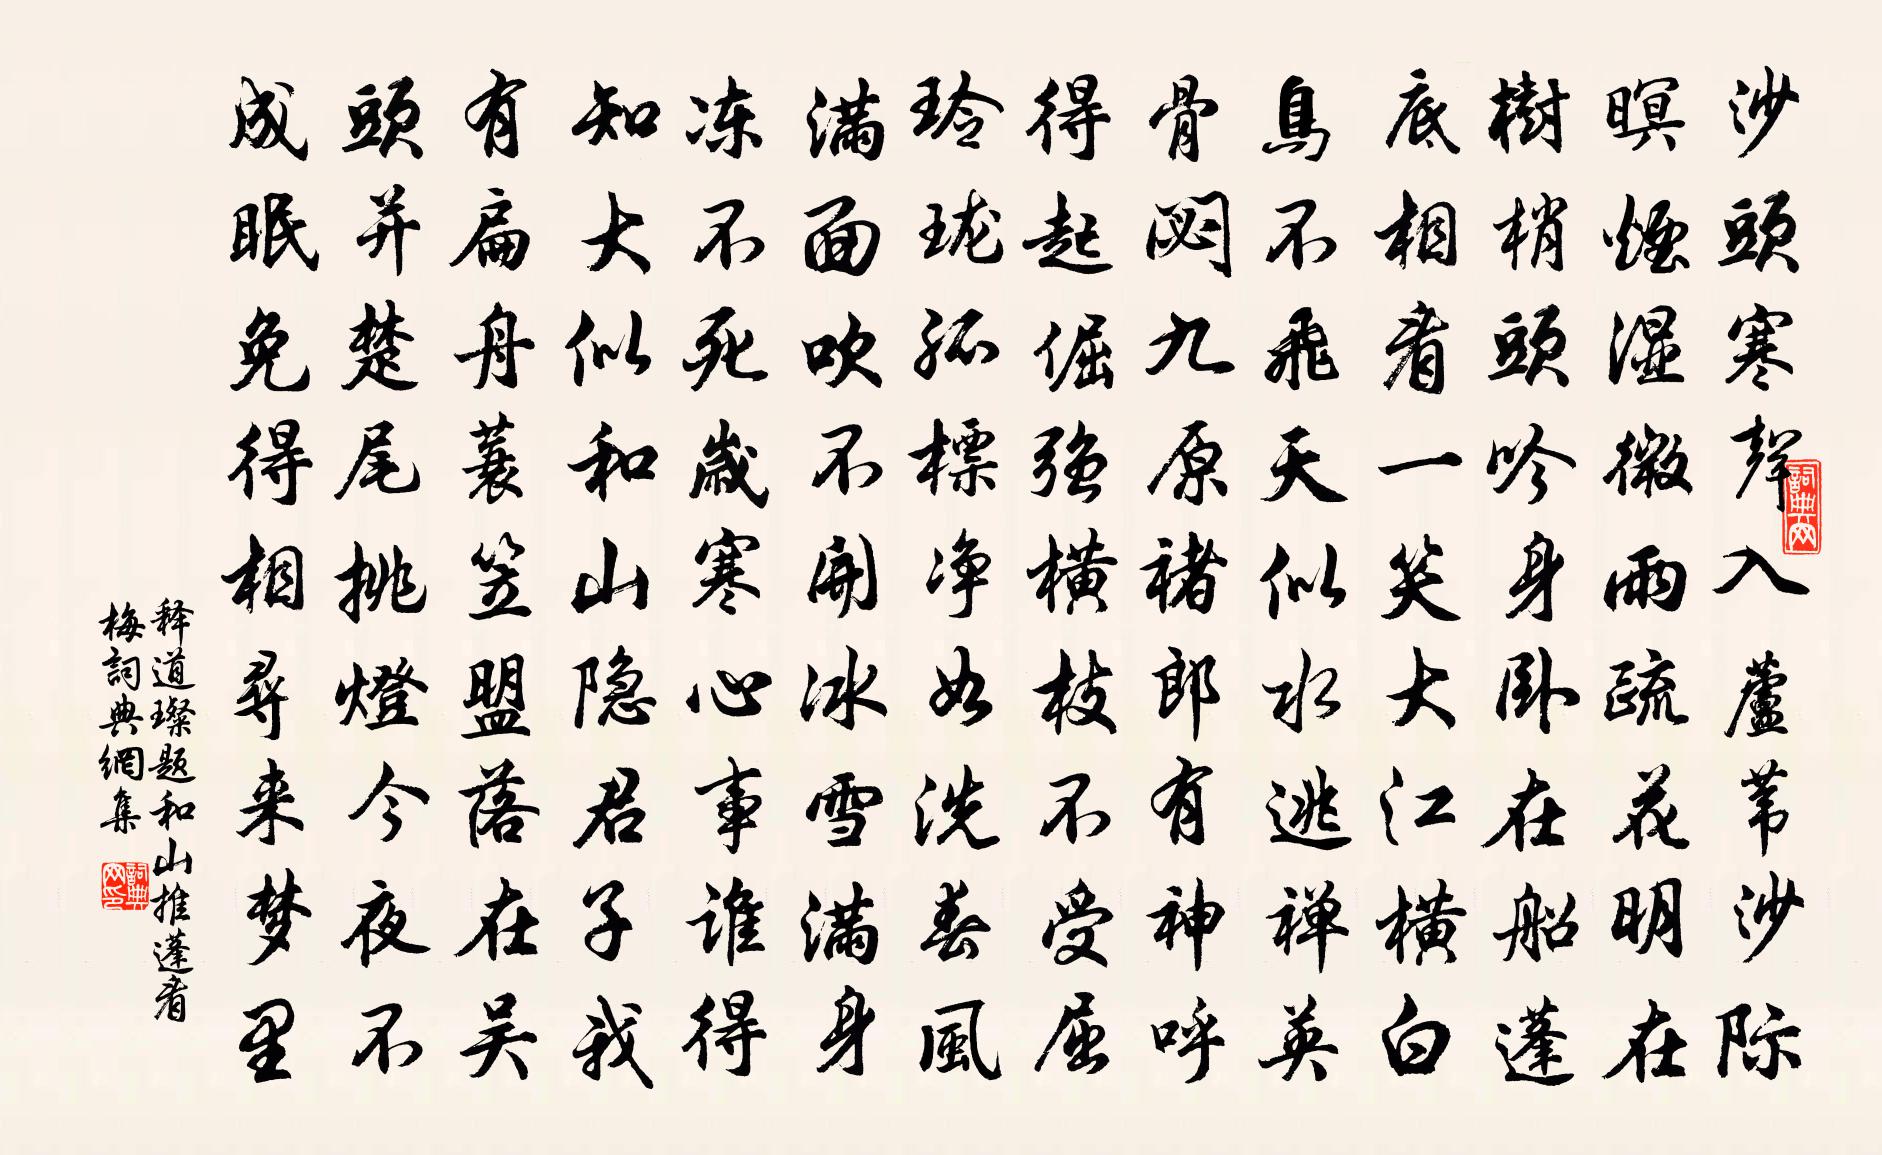 沙頭寒聲入蘆苇沙际
暝煙湿微雨疏花明在
樹梢頭吟身卧在船蓬
底相看一笑大江横白
鳥不飛天似水逃禅英
骨閟九原褚郎有神呼
得起倔强横枝不受屈
玲珑孤標净如洗春風
满面吹不開冰雪满身
冻不死歲寒心事誰得
知大似和山隐君子我
有扁舟蓑笠盟落在吴
頭并楚尾挑燈今夜不
成眠免得相尋来梦里
释道璨题和山推蓬看
梅詞典網集
詞典网
詞典网印